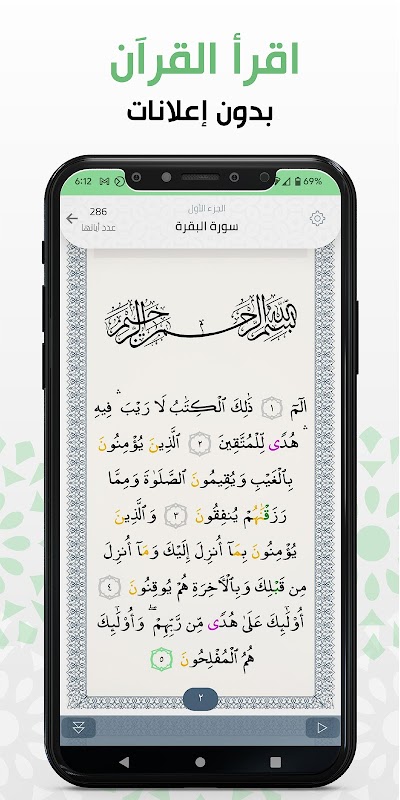 اقرأ القرآن
بدون إعلانات
6:12
69%
الجزء الأول
286
عدد آياتها
سورة البقرة
بِسْمِ اللَّهِ الرَّحْمَٰنِ الرَّحِيمِ
الٓمٓ ١ ذَٰلِكَ ٱلْكِتَٰبُ لَا رَيْبَ ۛ فِيهِ
ۛ هُدًى لِّلْمُتَّقِينَ ٢ ٱلَّذِينَ يُؤْمِنُونَ
بِٱلْغَيْبِ وَيُقِيمُونَ ٱلصَّلَوٰةَ وَمِمَّا
رَزَقْنَٰهُمْ يُنفِقُونَ ٣ وَٱلَّذِينَ
يُؤْمِنُونَ بِمَآ أُنزِلَ إِلَيْكَ وَمَآ أُنزِلَ
مِن قَبْلِكَ وَبِٱلْءَاخِرَةِ هُمْ يُوقِنُونَ ٤
أُو۟لَٰٓئِكَ عَلَىٰ هُدًى مِّن رَّبِّهِمْ ۖ وَأُو۟لَٰٓئِكَ
هُمُ ٱلْمُفْلِحُونَ ٥
٢